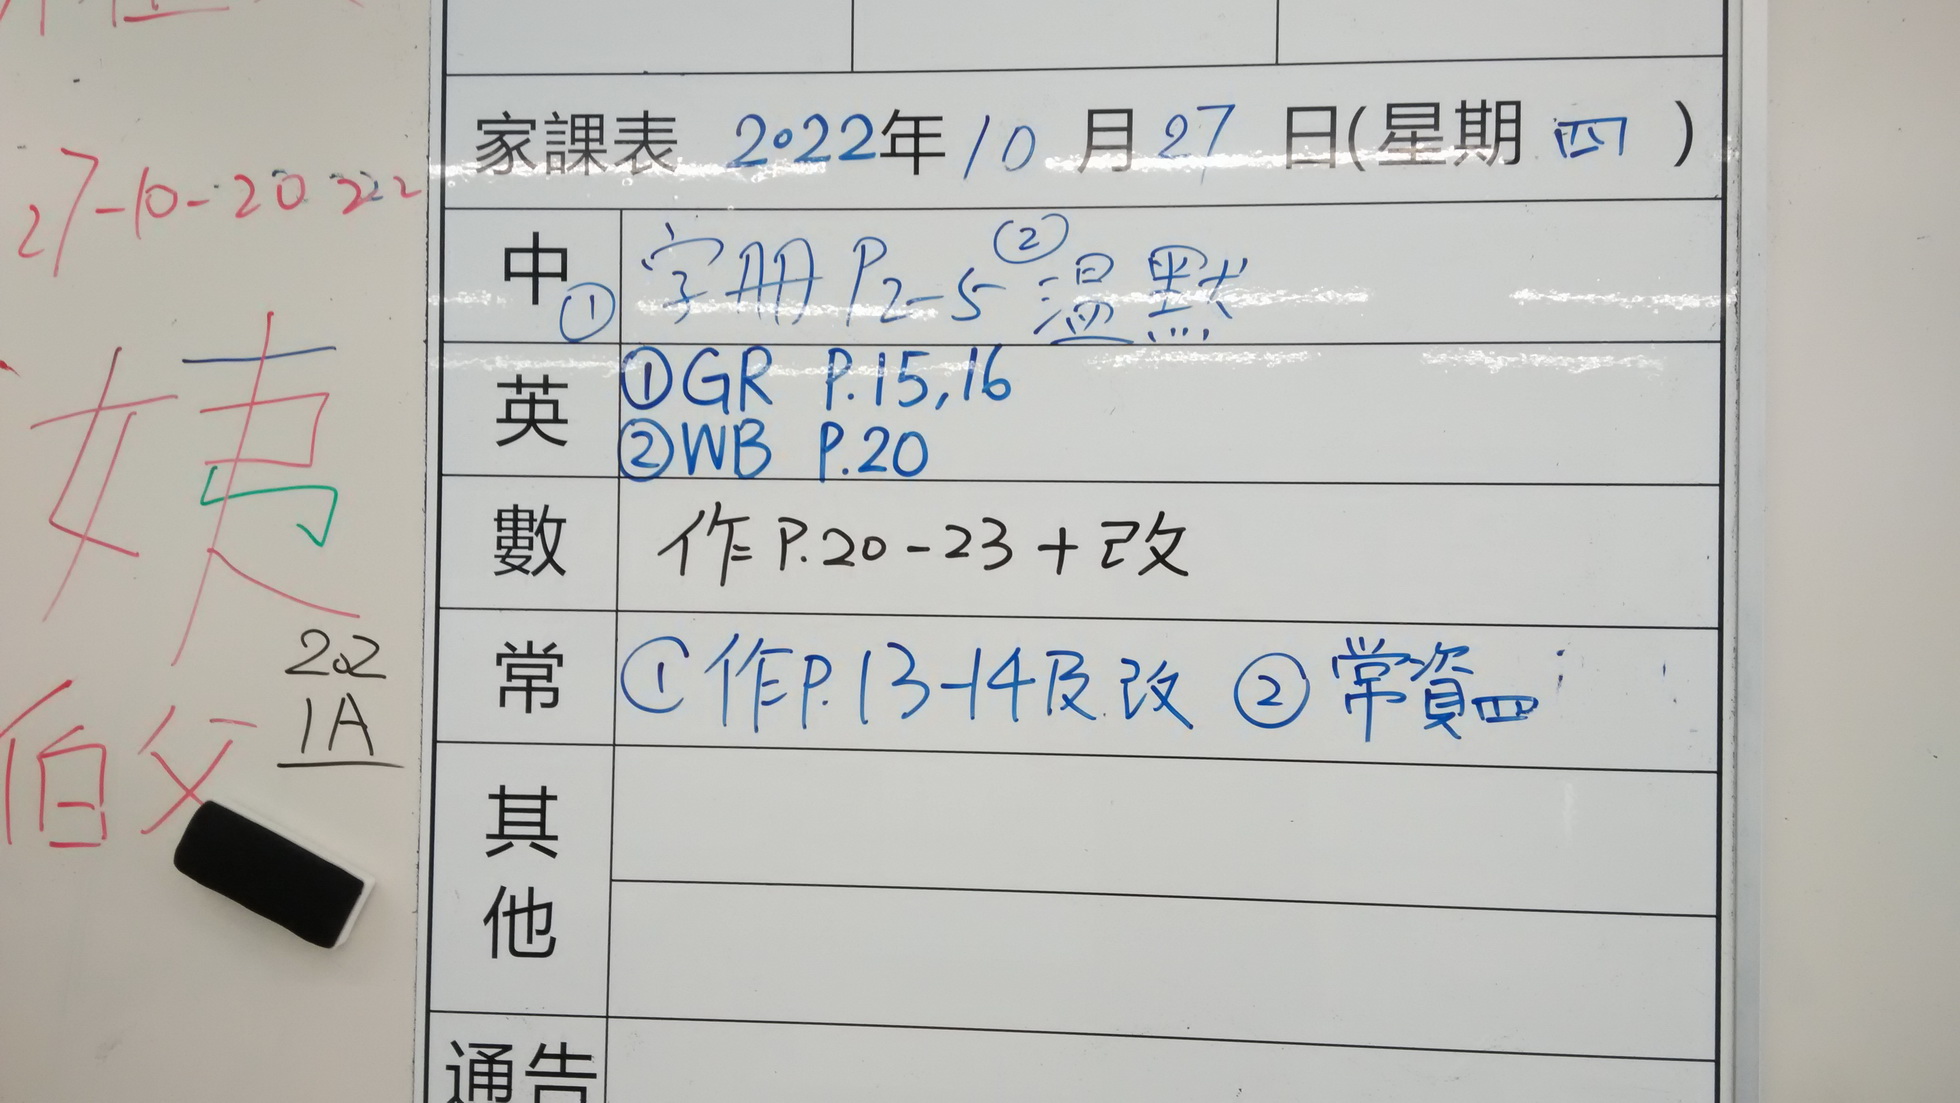 家課表 2022年10月27日(星期四)
27-10-2022
中 ①字冊 P2-5 ②溫默
英 ①GR P.15,16
②WB P.20
數 作P.20-23+改
姨
常 ①作P.13-14及改 ②常資四
22
1A
伯父
其他
通告